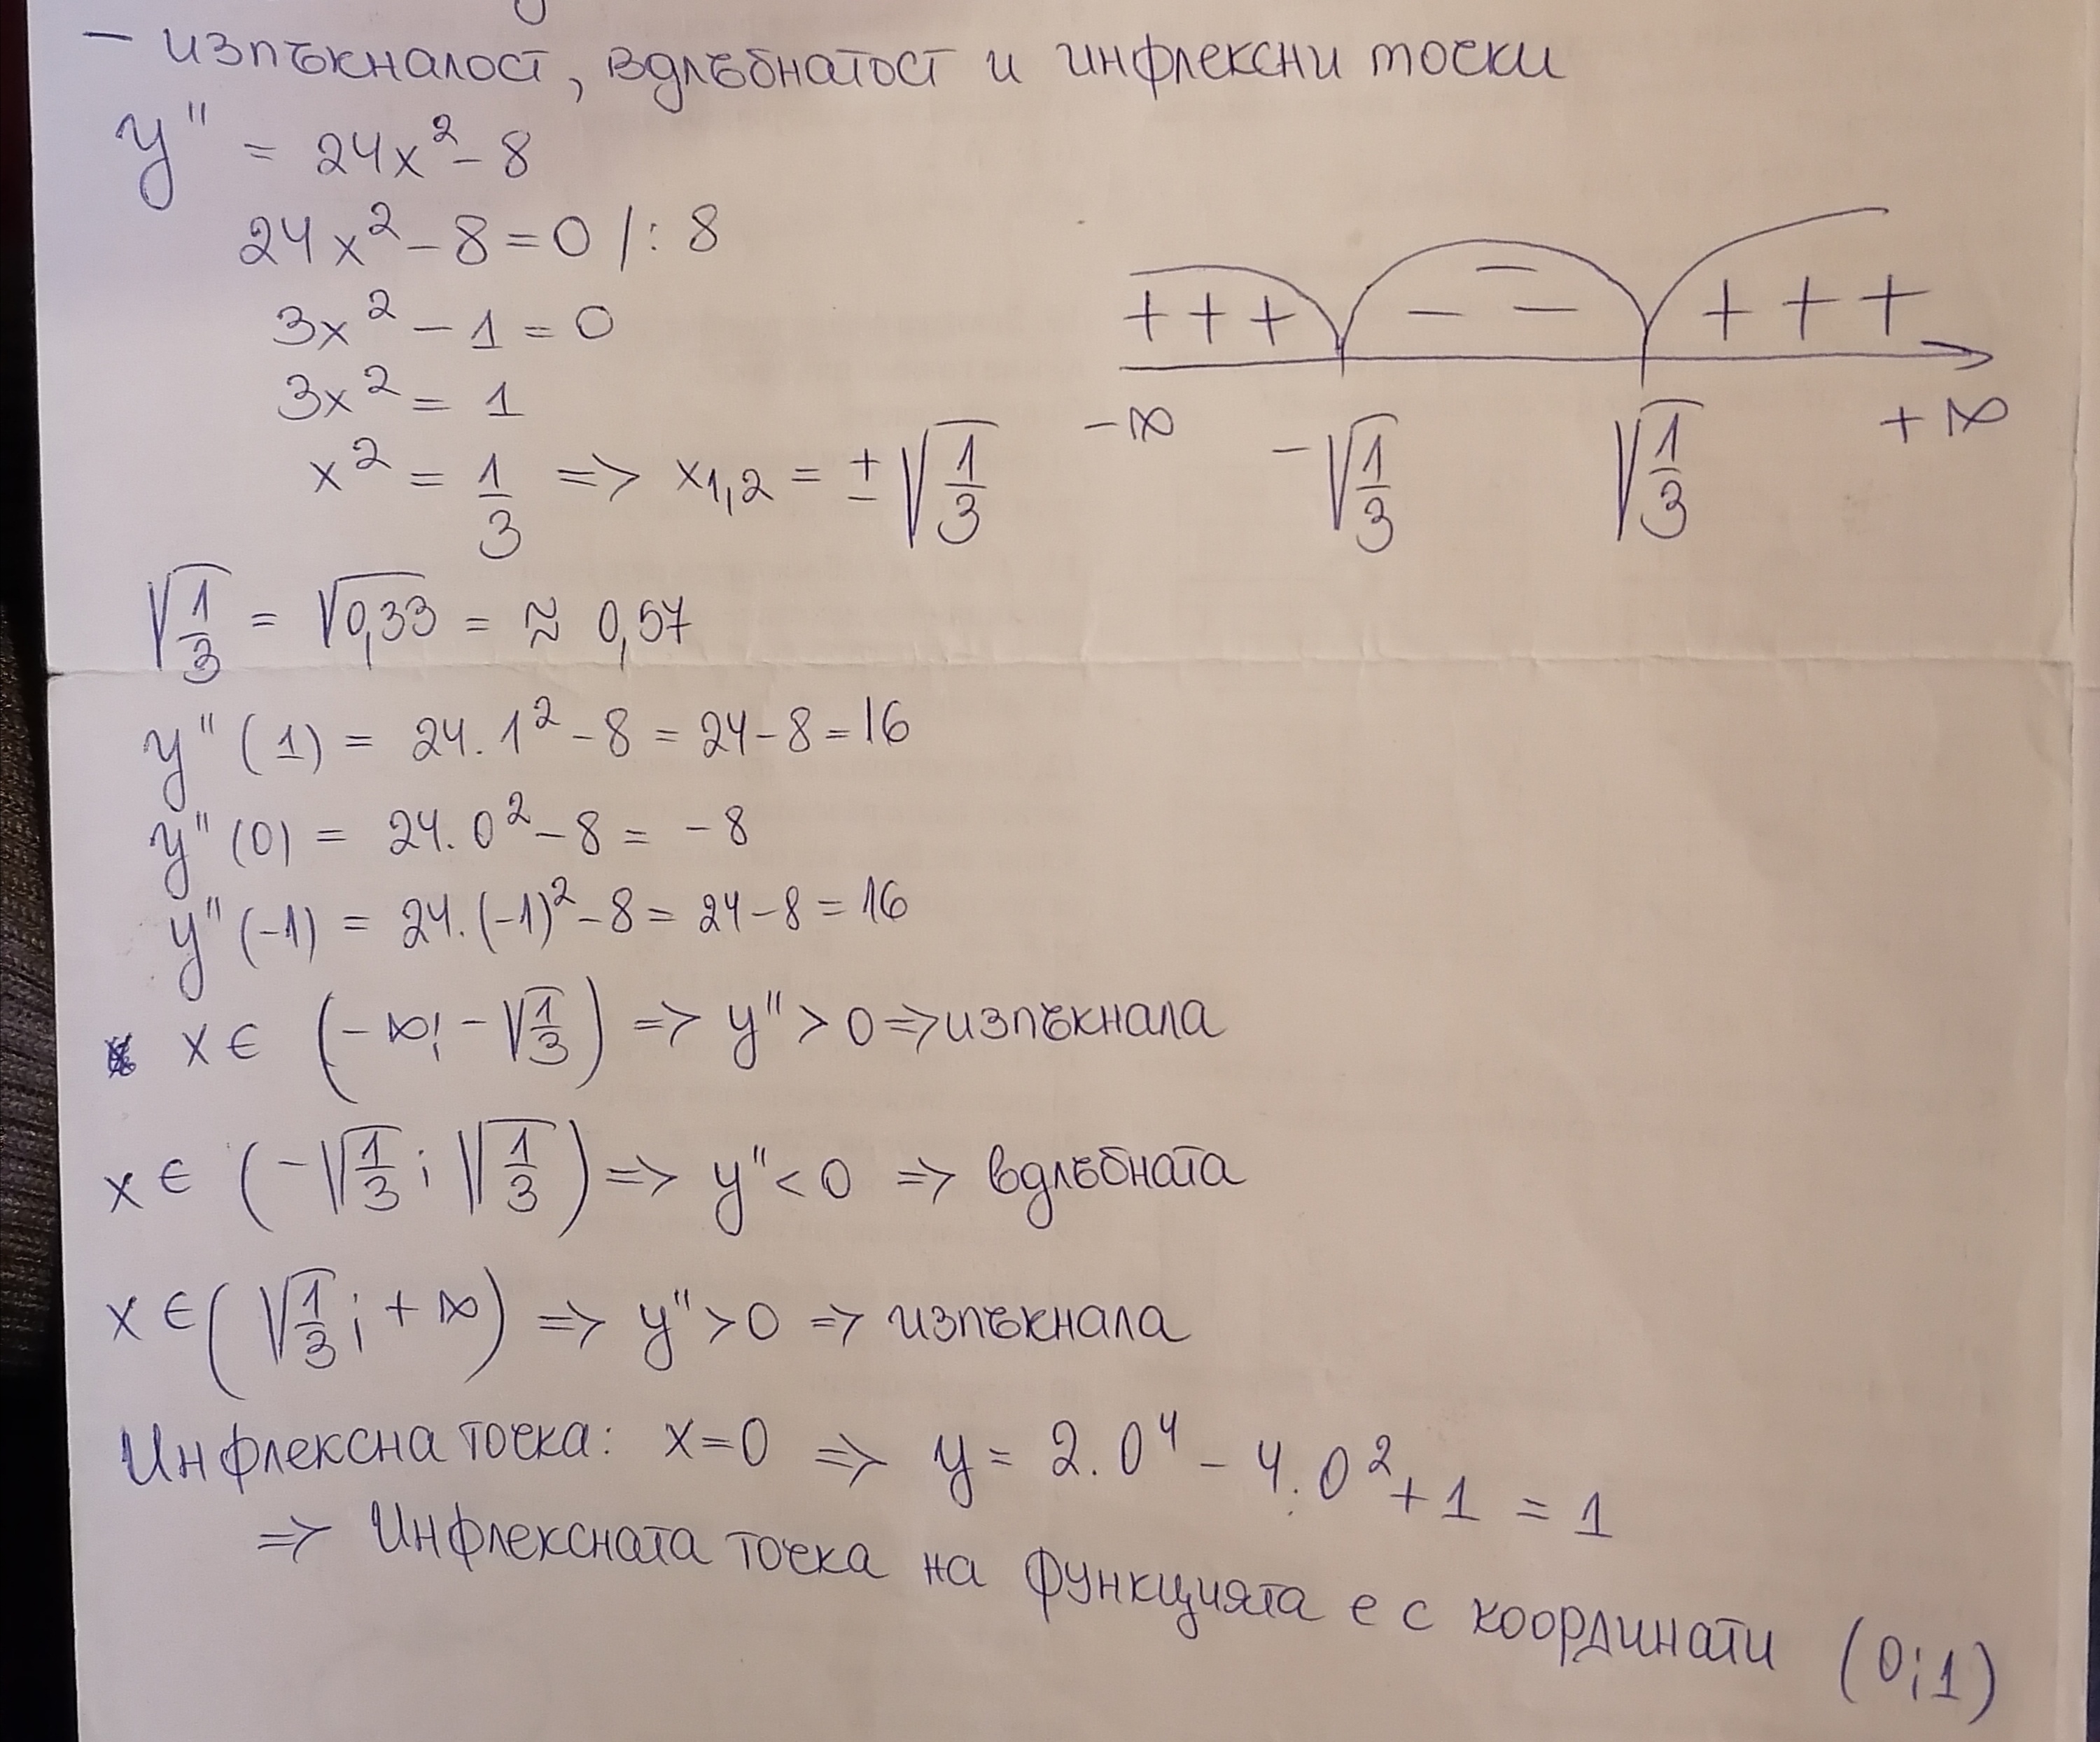 – изпъкналост, вдлъбнатост и инфлексни точки
y'' = 24x² – 8
24x² – 8 = 0 /: 8
3x² – 1 = 0
3x² = 1
x² = 1/3 => x₁,₂ = ± √(1/3)
+ + + – – – + + +
–∞ –√(1/3) √(1/3) +∞
√(1/3) = √0,33 = ≈ 0,57
y''(1) = 24.1² – 8 = 24 – 8 = 16
y''(0) = 24.0² – 8 = –8
y''(-1) = 24.(-1)² – 8 = 24 – 8 = 16
x ∈ (–∞; –√(1/3)) => y'' > 0 => изпъкнала
x ∈ (–√(1/3); √(1/3)) => y'' < 0 => вдлъбната
x ∈ (√(1/3); +∞) => y'' > 0 => изпъкнала
Инфлексна точка: x=0 => y = 2.0⁴ – 4.0² + 1 = 1
=> Инфлексната точка на функцията е с координати (0;1)